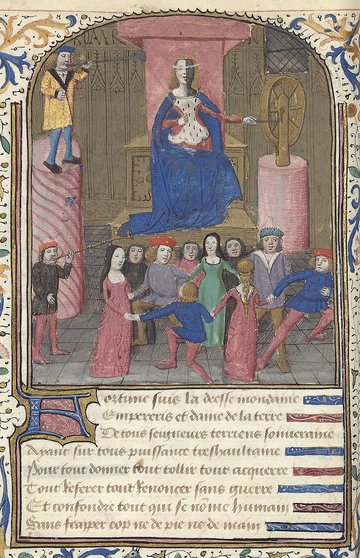 Fortune suis la deesse mondaine
Empereris et dame de la terre
De tous seigneurs terriens souveraine
Ayant sur tous puissance treshaultaine
Pour tout donner tout tollir tout acquerre
Tout referer tout renoncer sans guerre
Et confondre tout qui se nome humain
Sans fraper cop ne de pie ne de main